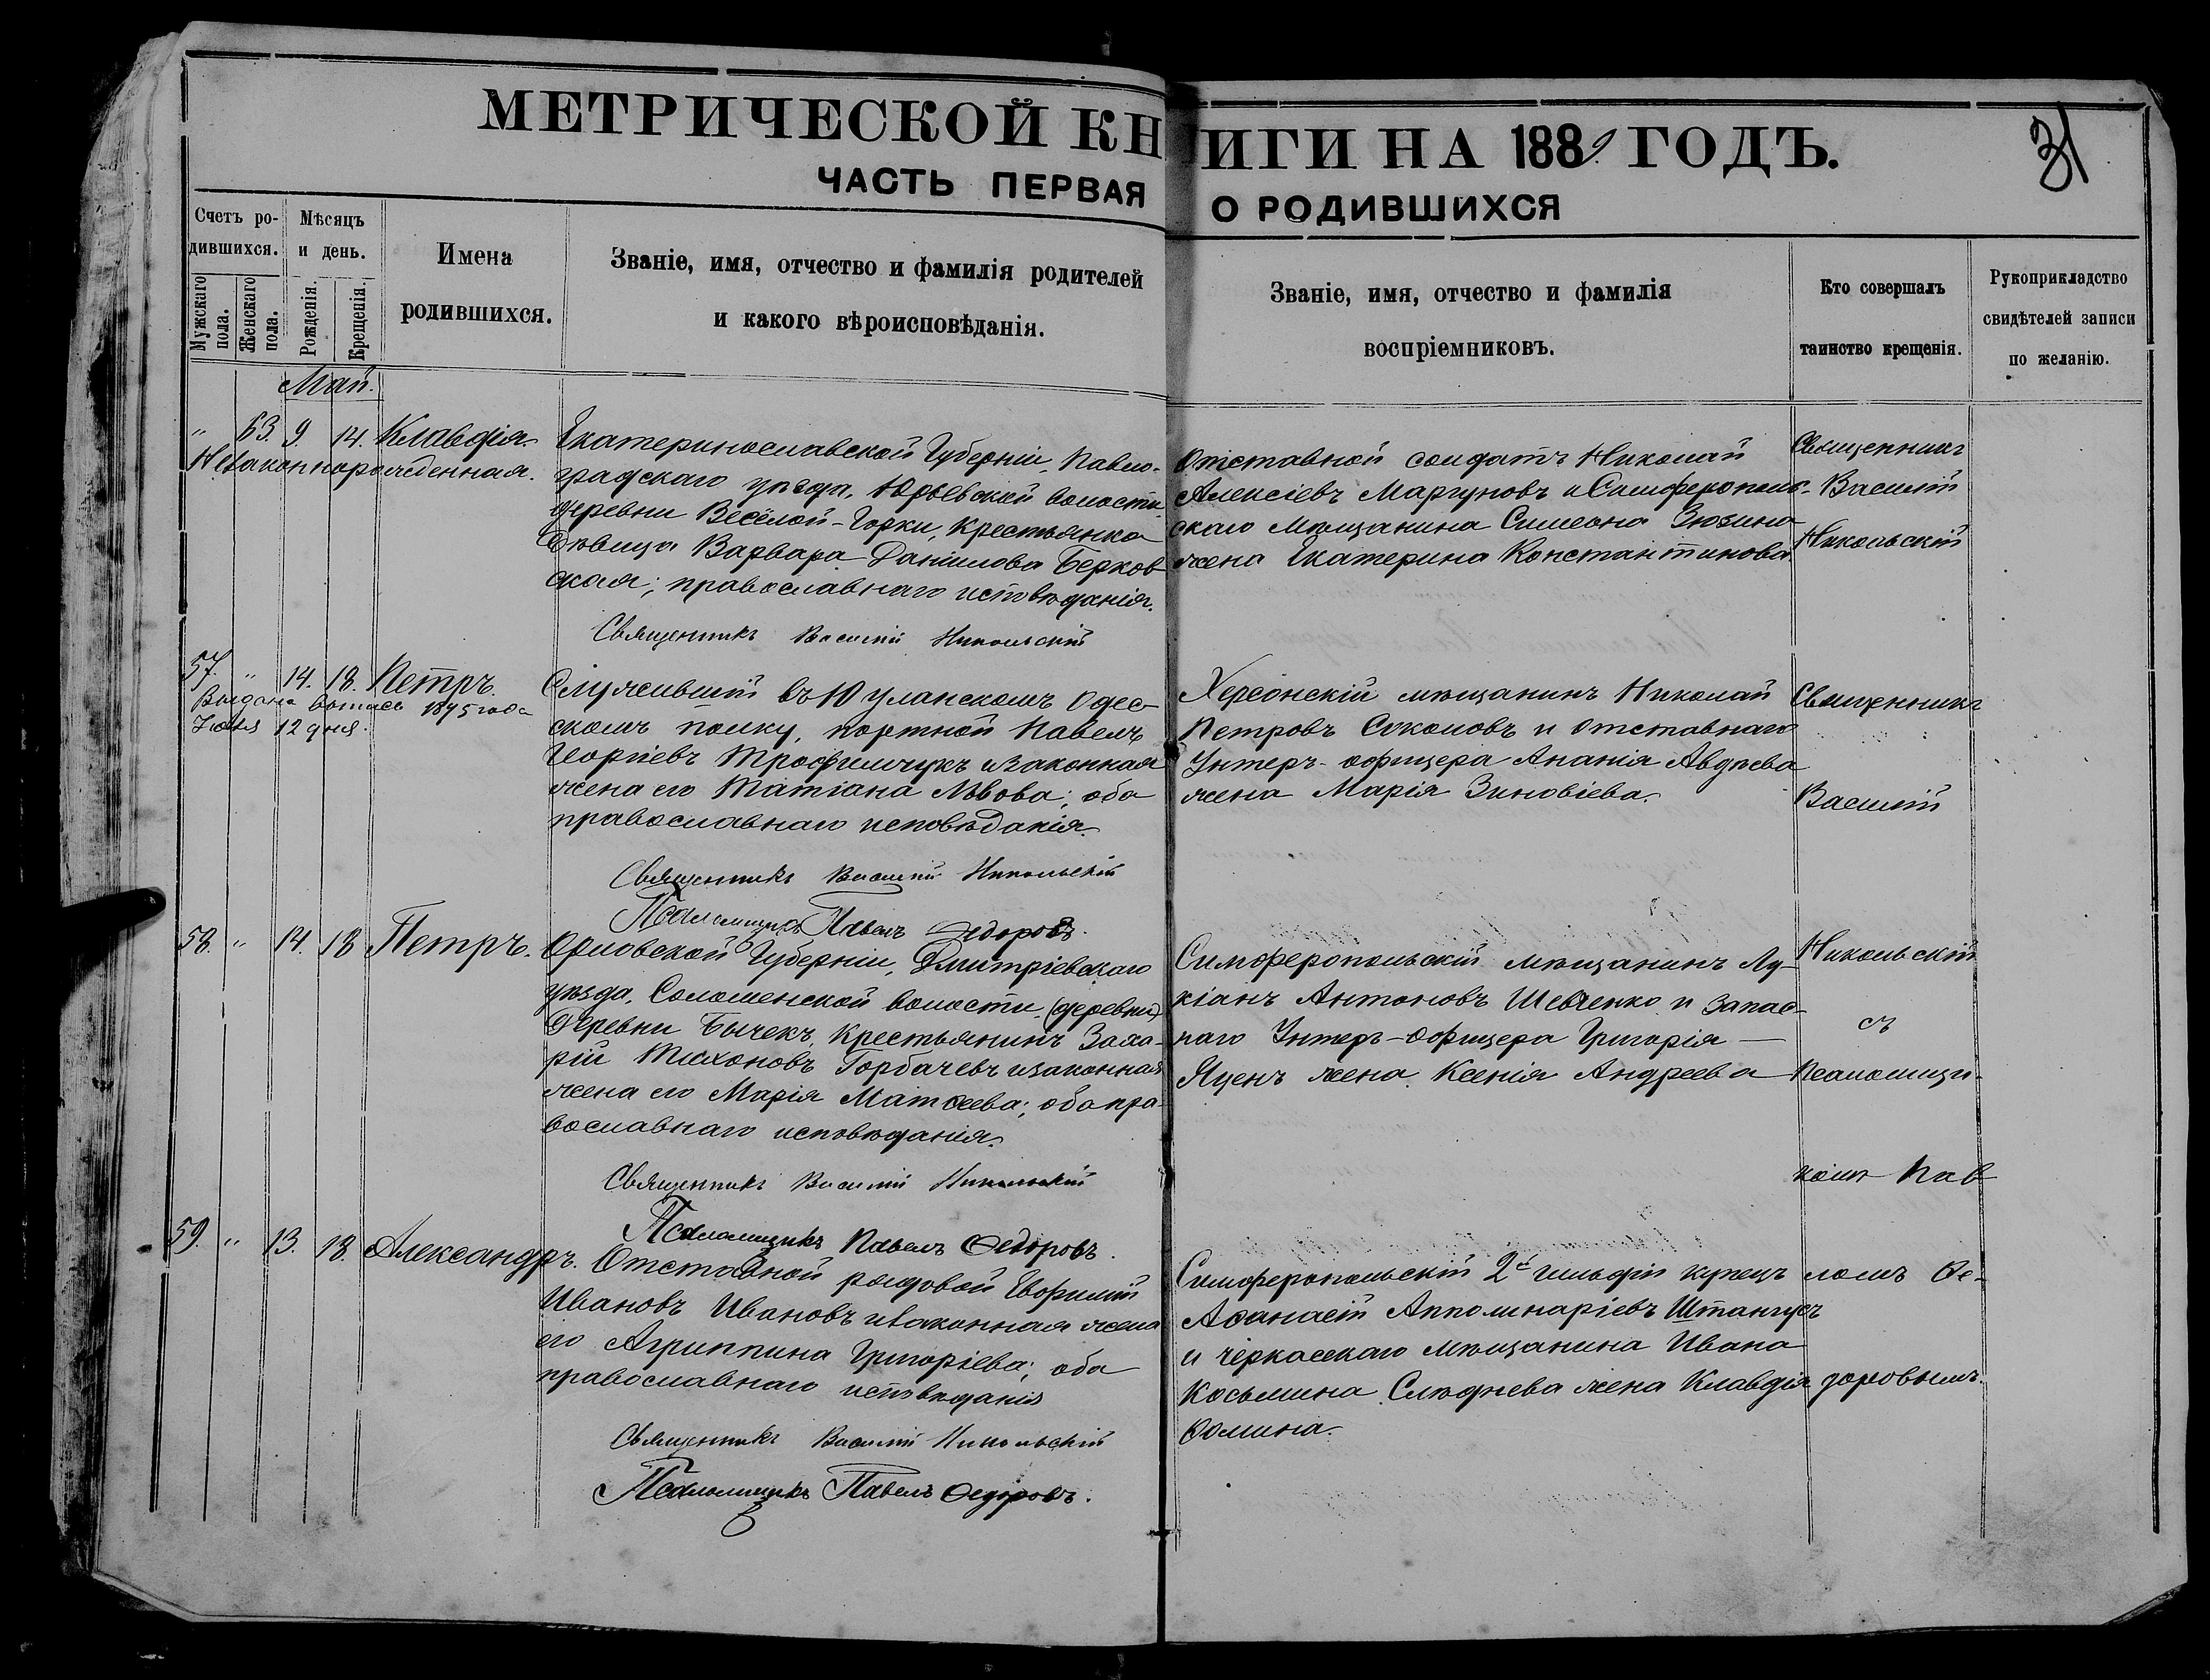 МЕТРИЧЕСКОЙ КНИГИ НА 1889 ГОДЪ.
31
ЧАСТЬ ПЕРВАЯ О РОДИВШИХСЯ
Счетъ ро-
дившихся.
Мужскаго пола.
Женскаго пола.
Мѣсяцъ
и день.
Рожденія.
Крещенія.
Имена
родившихся.
Званіе, имя, отчество и фамилія родителей
и какого вѣроисповѣданія.
Званіе, имя, отчество и фамилія
воспріемниковъ.
Кто совершалъ
таинство крещенія.
Рукоприкладство
свидѣтелей записи
по желанію.
Май.
" 63. 9. 14. Клавдія.
Незаконнорожденная.
Екатеринославской Губерніи, Павло-
градскаго уѣзда, Юрьевской волости
деревни Весёлой-Горки, крестьянка
дѣвица Варвара Даніилова Берков
ская; православнаго исповѣданія.
Священникъ Василій Никольскій
Отставной солдатъ Николай
Алексіевъ Маргуновъ и Симферополь-
скаго мѣщанина Симеона Зюзина
жена Екатерина Константинова.
Священникъ
Василій
Никольскій
57. " 14. 18. Петръ.
Выдана выпись 1895 года
12 дня.
Служившій въ 10 уланскомъ Одес-
скомъ полку, портной Павелъ
Георгіевъ Трофимчукъ и законная
жена его Татіана Львова; оба
православнаго исповѣданія.
Священникъ Василій Никольскій
Псаломщикъ Павелъ Ѳедоровъ.
Херсонскій мѣщанинъ Николай
Петровъ Соколовъ и отставнаго
Унтеръ-офицера Ананія Авдѣева
жена Марія Зиновіева.
Священникъ
Василій
58. " 14. 18 Петръ.
Орловской Губерніи, Дмитріевскаго
уѣзда, Соломенской волости, (деревни)
деревни Бычекъ, крестьянинъ Заха-
рій Тихоновъ Горбачевъ и законная
жена его Марія Матѳеева; оба пра-
вославнаго исповѣданія.
Священникъ Василій Никольскій
Псаломщикъ Павелъ Ѳедоровъ.
Симферопольскій мѣщанинъ Лу-
кіанъ Антоновъ Шевченко и запас-
наго Унтеръ-офицера Григорія —
Яценъ жена Ксенія Андреева
Никольскій
съ
Псаломщи-
комъ Пав
59. " 13. 18. Александръ.
Отставной рядовой Евфимій
Ивановъ Ивановъ и законная жена
его Агриппина Григоріева; оба
православнаго исповѣданія
Священникъ Василій Никольскій
Псаломщикъ Павелъ Ѳедоровъ.
Симферопольскій 2й гильдіи купецъ
Аѳанасій Апполинаріевъ
и черкасскаго мѣщанина Ивана
Косьмина Слѣднева жена Клавдія
Ѳомина.
ломъ Ѳе-
доровымъ.